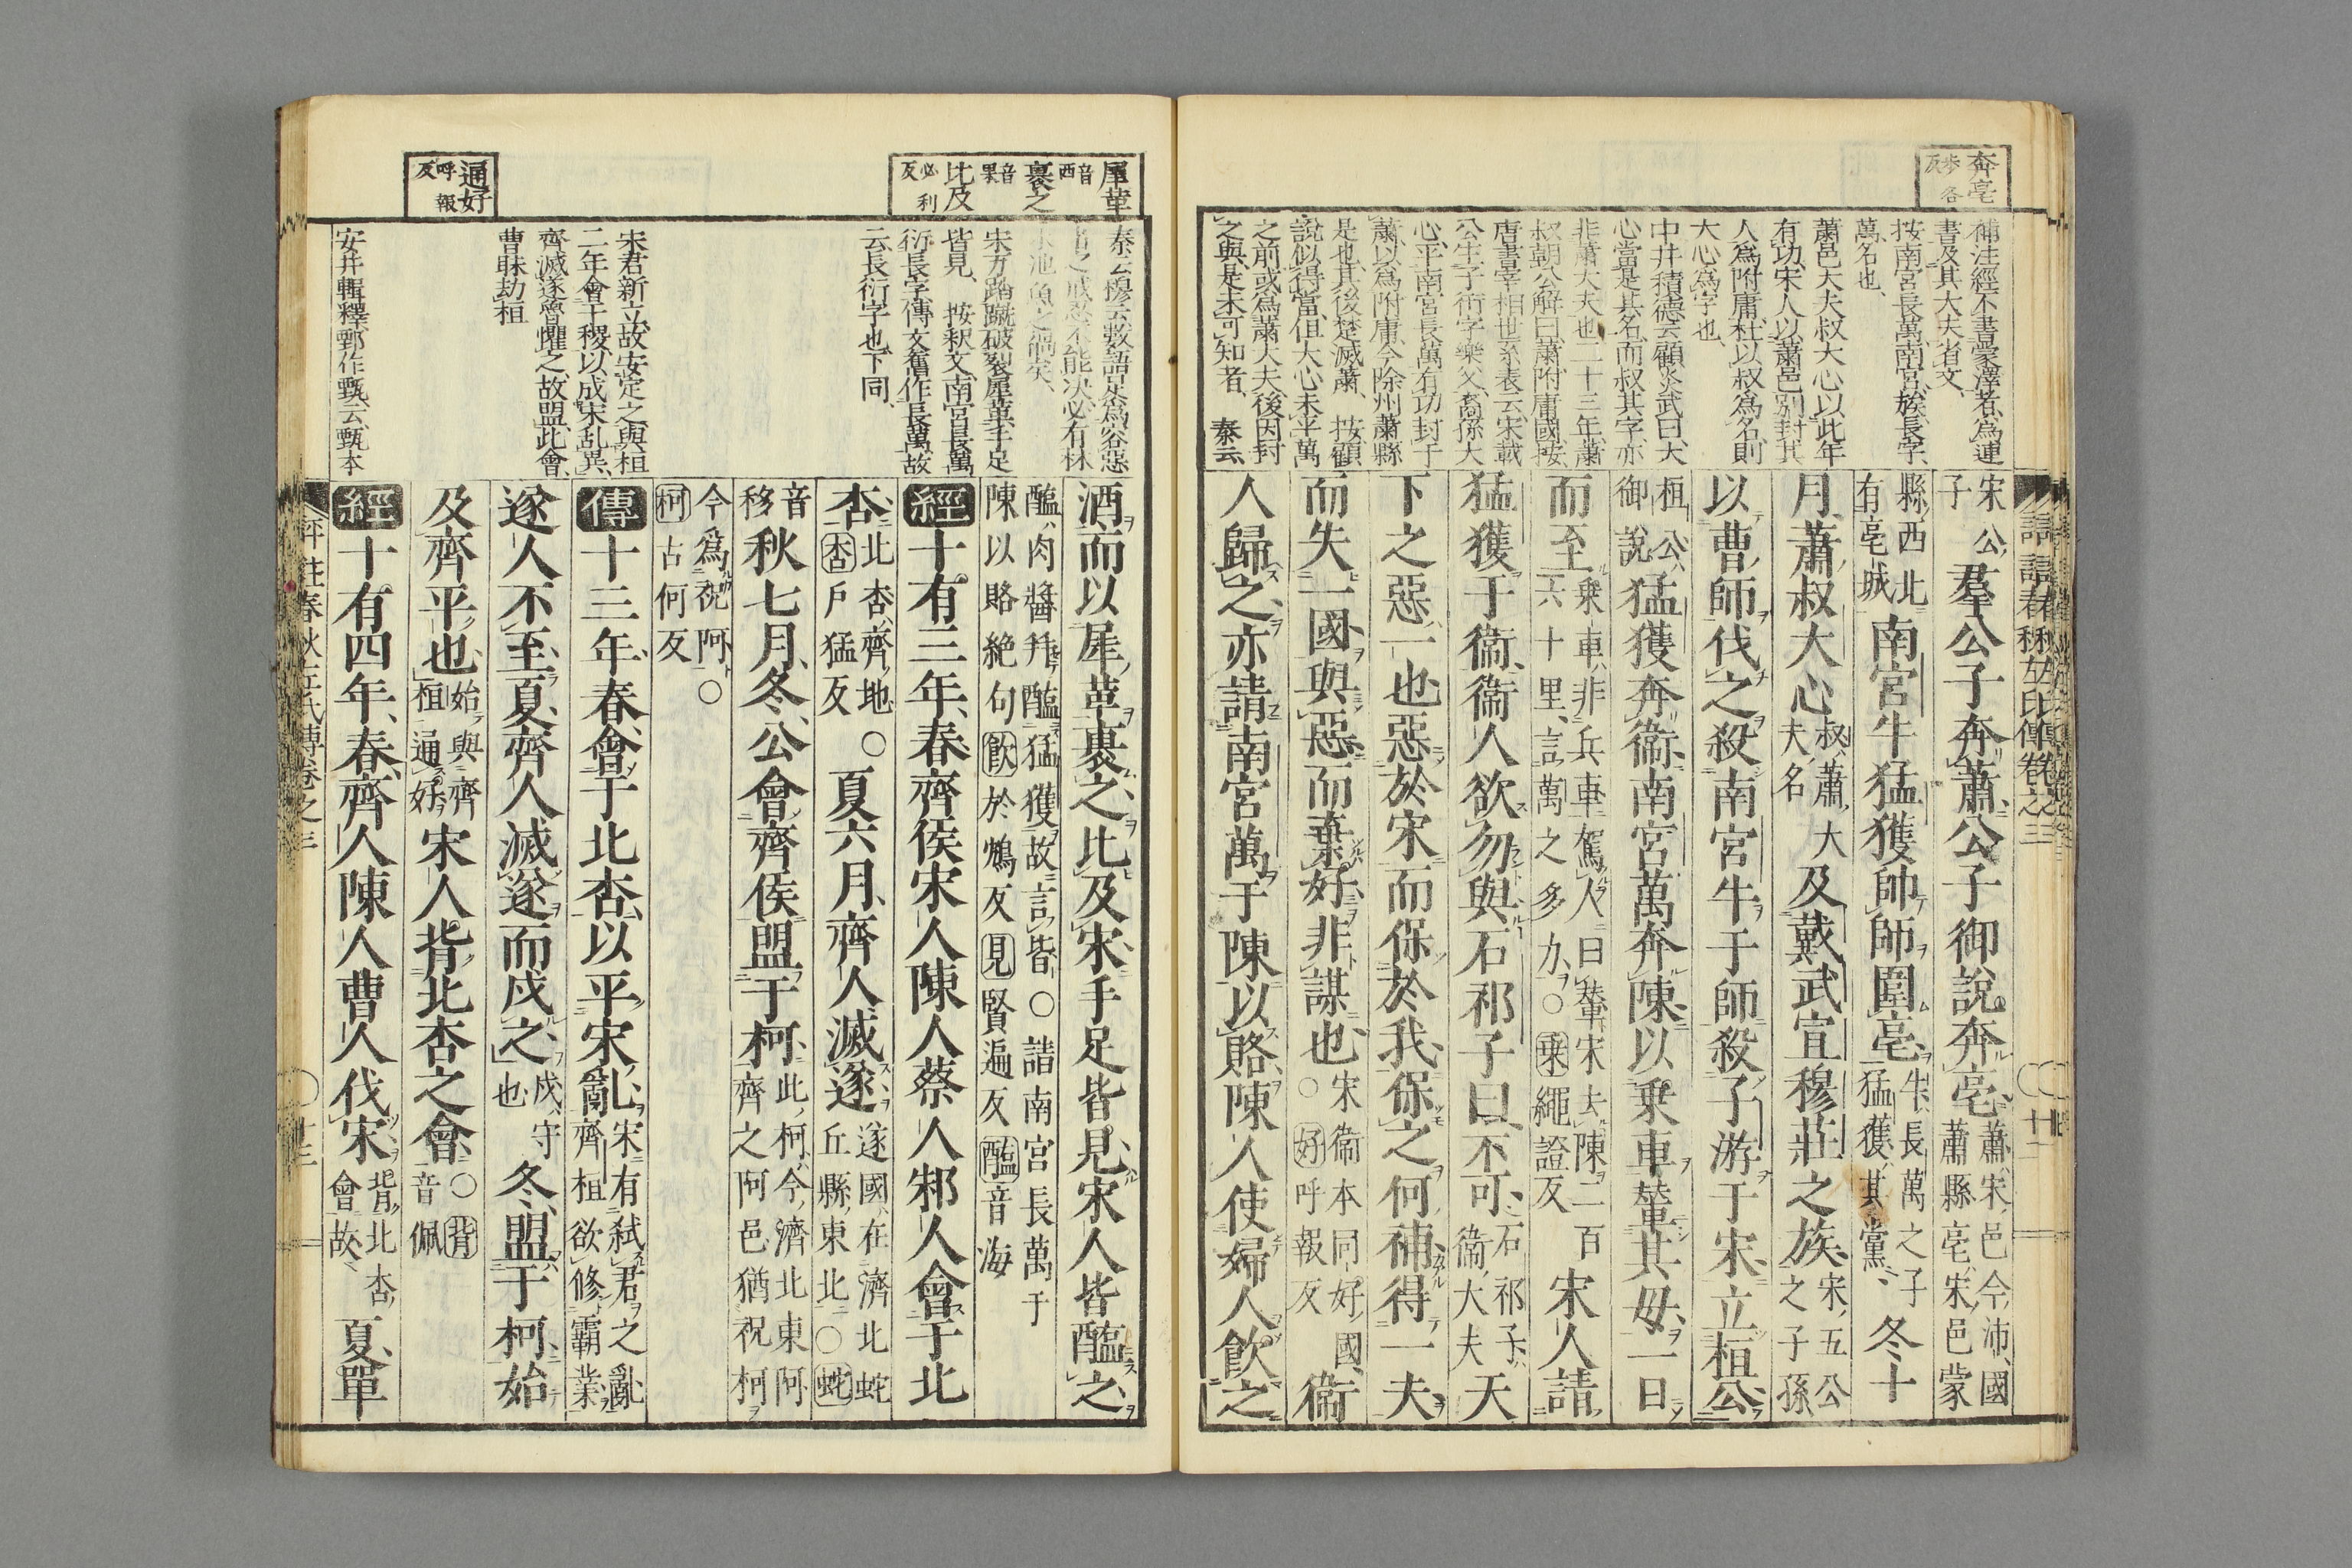 奔亳
步各
反
補注經不書蒙澤者為連
書及其大夫省文
按南宮長萬南宮族長字
萬名也
蕭邑大夫叔大心以此年
有功宋人以蕭邑別封其
人為附庸杜以叔為名則
大心為字也
中井積德云顧炎武曰大
心當是其名而叔其字亦
非蕭大夫也二十三年蕭
叔朝公解曰蕭附庸國按
唐書宰相世系表云宋戴
公生子衎字樂父裔孫大
心平南宮長萬有功封于
蕭以為附庸今徐州蕭縣
是也其後楚滅蕭 按顧
說似得當但大心未平萬
之前或為蕭大夫後因封
之與是未可知者 秦云
宋公
子
羣公子奔蕭公子御說奔亳
蕭宋邑今沛國
蕭縣亳宋邑蒙
縣西北
有亳城
南宮牛猛獲帥師圍亳
牛長萬之子
猛獲其黨
冬十
月蕭叔大心
叔蕭大
夫名
及戴武宣穆莊之族
宋五公
之子孫
以曹師伐之殺南宮牛于師殺子游于宋立桓公
桓公
御說
猛獲奔衞南宮萬奔陳以乘車輦其母一日
而至
乘車非兵車駕人曰輦宋去陳二百
六十里言萬之多力○乘繩證反
宋人請
猛獲于衞衞人欲勿與石祁子曰不可
石祁子
衞大夫
天
下之惡一也惡於宋而保於我保之何補得一夫
而失一國與惡而棄好非謀也
宋衞本同好國
○好呼報反
衞
人歸之亦請南宮萬于陳以賂陳人使婦人飲之
犀革
音西
裹之
音果
比及
必利
反
宋方踏蹴破裂犀革手足
皆見 按釈文南宮長萬
衍長字傳文舊作長萬故
云長衍字也下同
酒而以犀革裹之比及宋手足皆見宋人皆醢之
醢肉醬幷醢猛獲故言皆○諸南宮長萬于
陳以賂絕句飲於鴆反見賢遍反醢音海
經十有三年春齊侯宋人陳人蔡人邾人會于北
杏
北杏齊地○
杏戶猛反
夏六月齊人滅遂
遂國在濟北蛇
丘縣東北○蛇
音
移
秋七月冬公會齊侯盟于柯
此柯今濟北東阿
齊之阿邑猶祝柯
今為祝阿○
柯古何反
宋君新立故安定之與桓
二年會于稷以成宋乱異
齊滅遂魯懼之故盟此會
曹昧劫桓
傳十三年春會于北杏以平宋亂
宋有弑君之亂
齊桓欲修霸業
遂人不至夏齊人滅遂而戍之
戍守
也
冬盟于柯始
通好
呼報
反
及齊平也
始與齊
桓通好
宋人背北杏之會
○背
音佩
安井輯釋鄄作甄云甄本
經十有四年春齊人陳人曹人伐宋
背北杏
會故
夏單